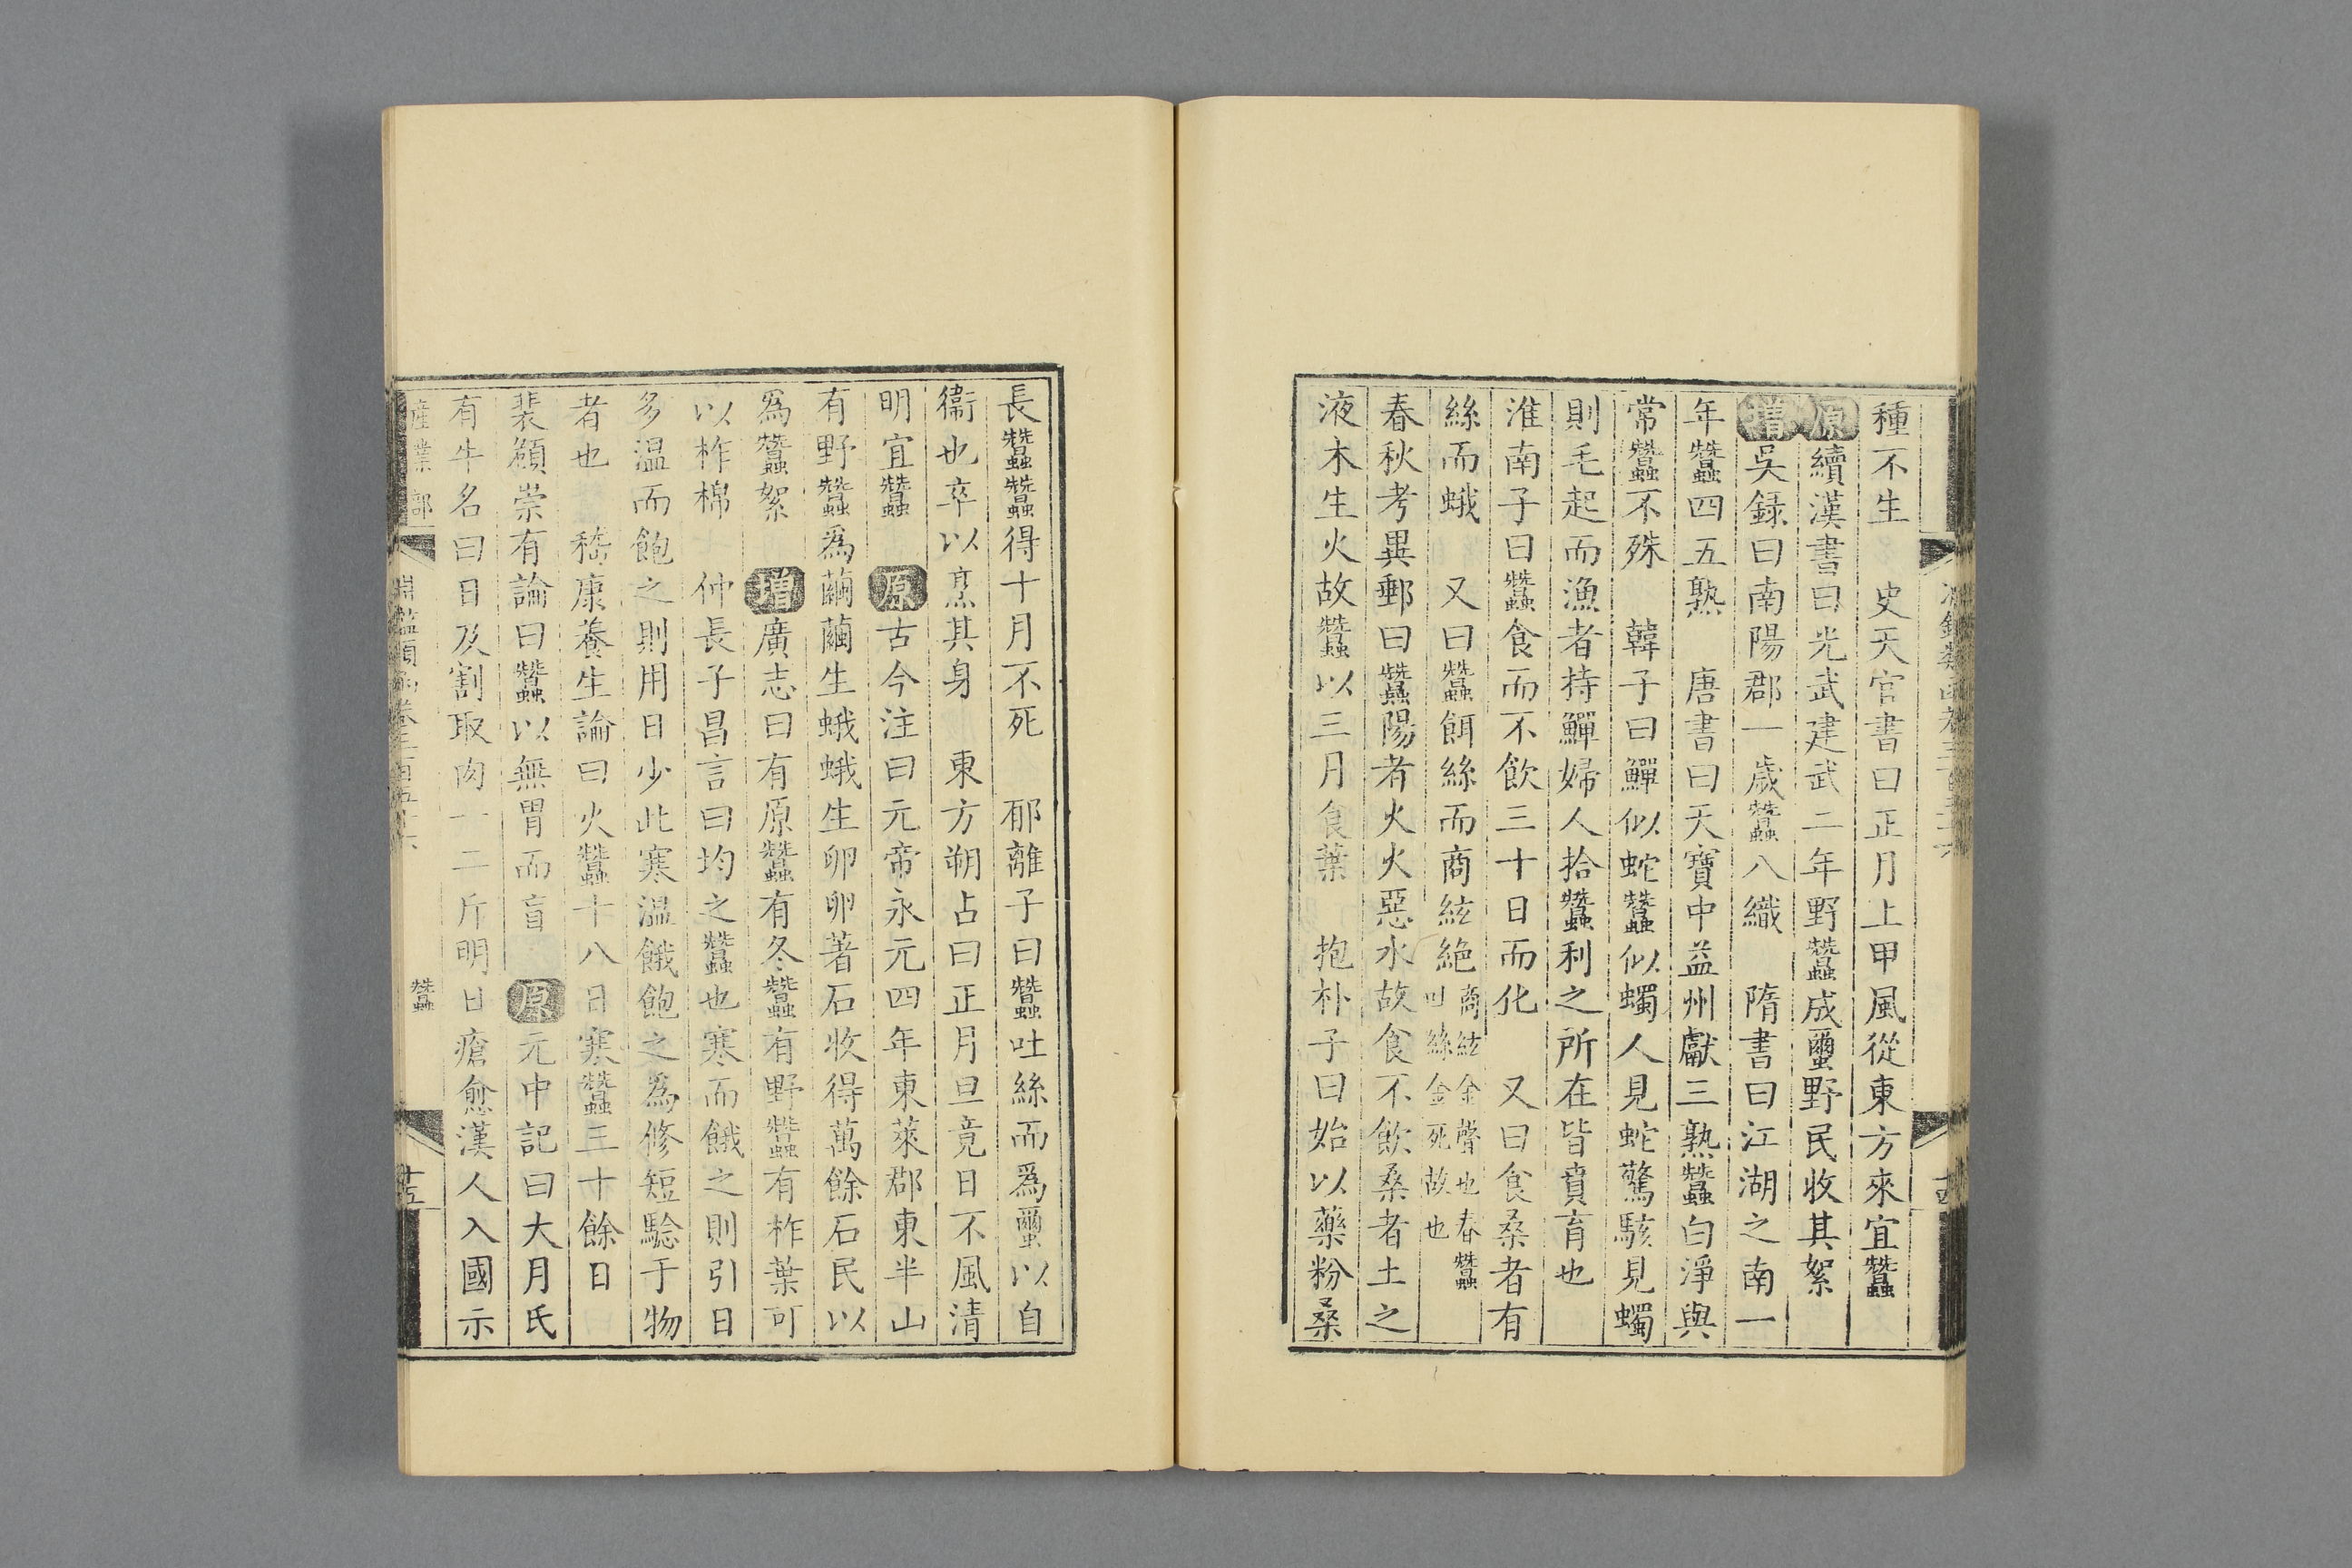 種不生　史天官書曰正月上甲風從東方來宜蠶
原續漢書曰光武建武二年野蠶成璽野民收其絮
增吳録曰南陽郡一歲蠶八織　隋書曰江湖之南一
年蠶四五熟　唐書曰天寶中益州獻三熟蠶白淨與
常蠶不殊　韓子曰鱓似蛇蠶似蠋人見蛇驚駭見蠋
則毛起而漁者持鱓婦人拾蠶利之所在皆賁育也
淮南子曰蠶食而不飲三十日而化　又曰食桑者有
絲而蛾　又曰蠶餌絲而商絃絶商絃金聲也春蠶吐絲金死故也
春秋考異郵曰蠶陽者火火惡水故食不飲桑者土之
液木生火故蠶以三月食葉　抱朴子曰始以藥粉桑
長蠶蠶得十月不死　郁離子曰蠶吐絲而爲璽以自
衞也卒以烹其身　東方朔占曰正月旦竟日不風清
明宜蠶　原古今注曰元帝永元四年東萊郡東半山
有野蠶爲繭繭生蛾蛾生卵卵著石收得萬餘石民以
爲蠶絮　增廣志曰有原蠶有冬蠶有野蠶有柞葉可
以柞棉　仲長子昌言曰均之蠶也寒而餓之則引日
多温而飽之則用日少此寒温餓飽之爲修短騐于物
者也　嵇康養生論曰火蠶十八日寒蠶三十餘日
裴頠崇有論曰蠶以無胃而盲　原元中記曰大月氏
有牛名曰日及割取肉一二斤明日瘡愈漢人入國示
產業部　淵鑑類函卷三百五十六　蠶　十五